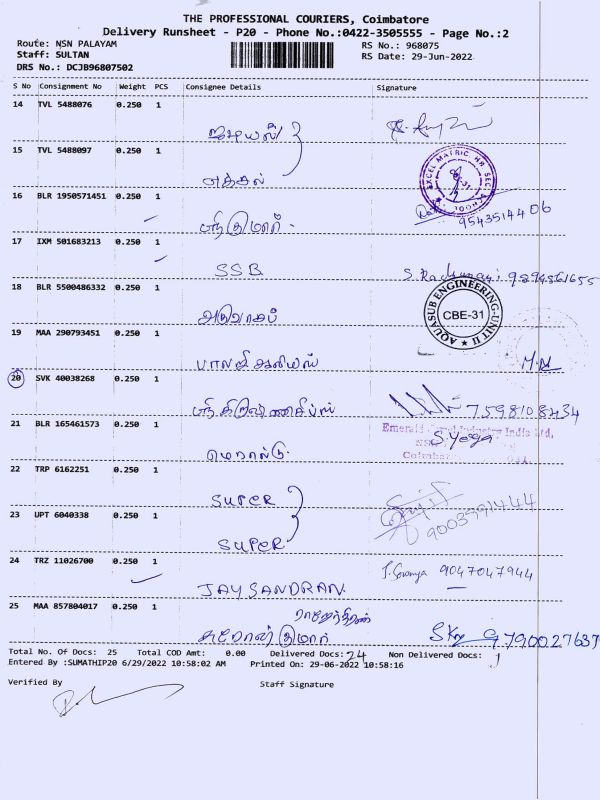 THE PROFESSIONAL COURIERS, Coimbatore
Delivery Runsheet - P20 - Phone No.:0422-3505555 - Page No.:2
Route: NSN PALAYAM
RS No.: 968075
Staff: SULTAN
RS Date: 29-Jun-2022
DRS No.: DCJB96807502
S No Consignment No Weight PCS Consignee Details Signature
14 TVL 5488076 0.250 1
15 TVL 5488097 0.250 1
EXCEL MATRIC HR SEC SCHOOL
16 BLR 1950571451 0.250 1
9543514406
ஸ்ரீகுமார்.
17 IXM 501683213 0.250 1
SSB
18 BLR 5500486332 0.250 1
AQUASUB ENGINEERING-UNIT II
CBE-31
19 MAA 290793451 0.250 1
20 SVK 40038268 0.250 1
7598108434
21 BLR 165461573 0.250 1
S. Yoga
22 TRP 6162251 0.250 1
SUPER
9003991444
23 UPT 6040338 0.250 1
SUPER
24 TRZ 11026700 0.250 1
9047047944
JAYSANDRAN
25 MAA 857804017 0.250 1
ராஜேந்திரன்
9790027637
Total No. Of Docs: 25 Total COD Amt: 0.00 Delivered Docs: 24 Non Delivered Docs: 1
Entered By :SUMATHIP20 6/29/2022 10:58:02 AM Printed On: 29-06-2022 10:58:16
Verified By Staff Signature